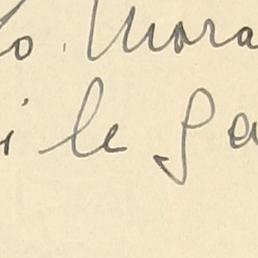 o. Mora
i le ga